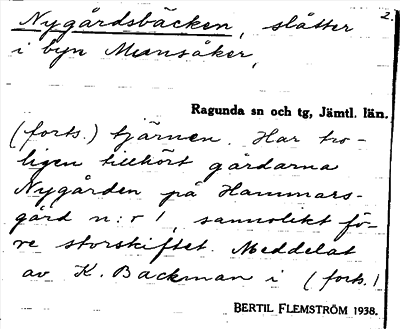 Nygårdsbäcken, slåtter 2.
i byn Munsåker,
Ragunda sn och tg, Jämtl. län.
(forts.) tjärnen. Har tro-
ligen tillhört gårdarna
Nygården på Hammars-
gård n:r 1, sannolikt fö-
re storskiftet. Meddelat
av K. Backman i (forts.)
BERTIL FLEMSTRÖM 1938.